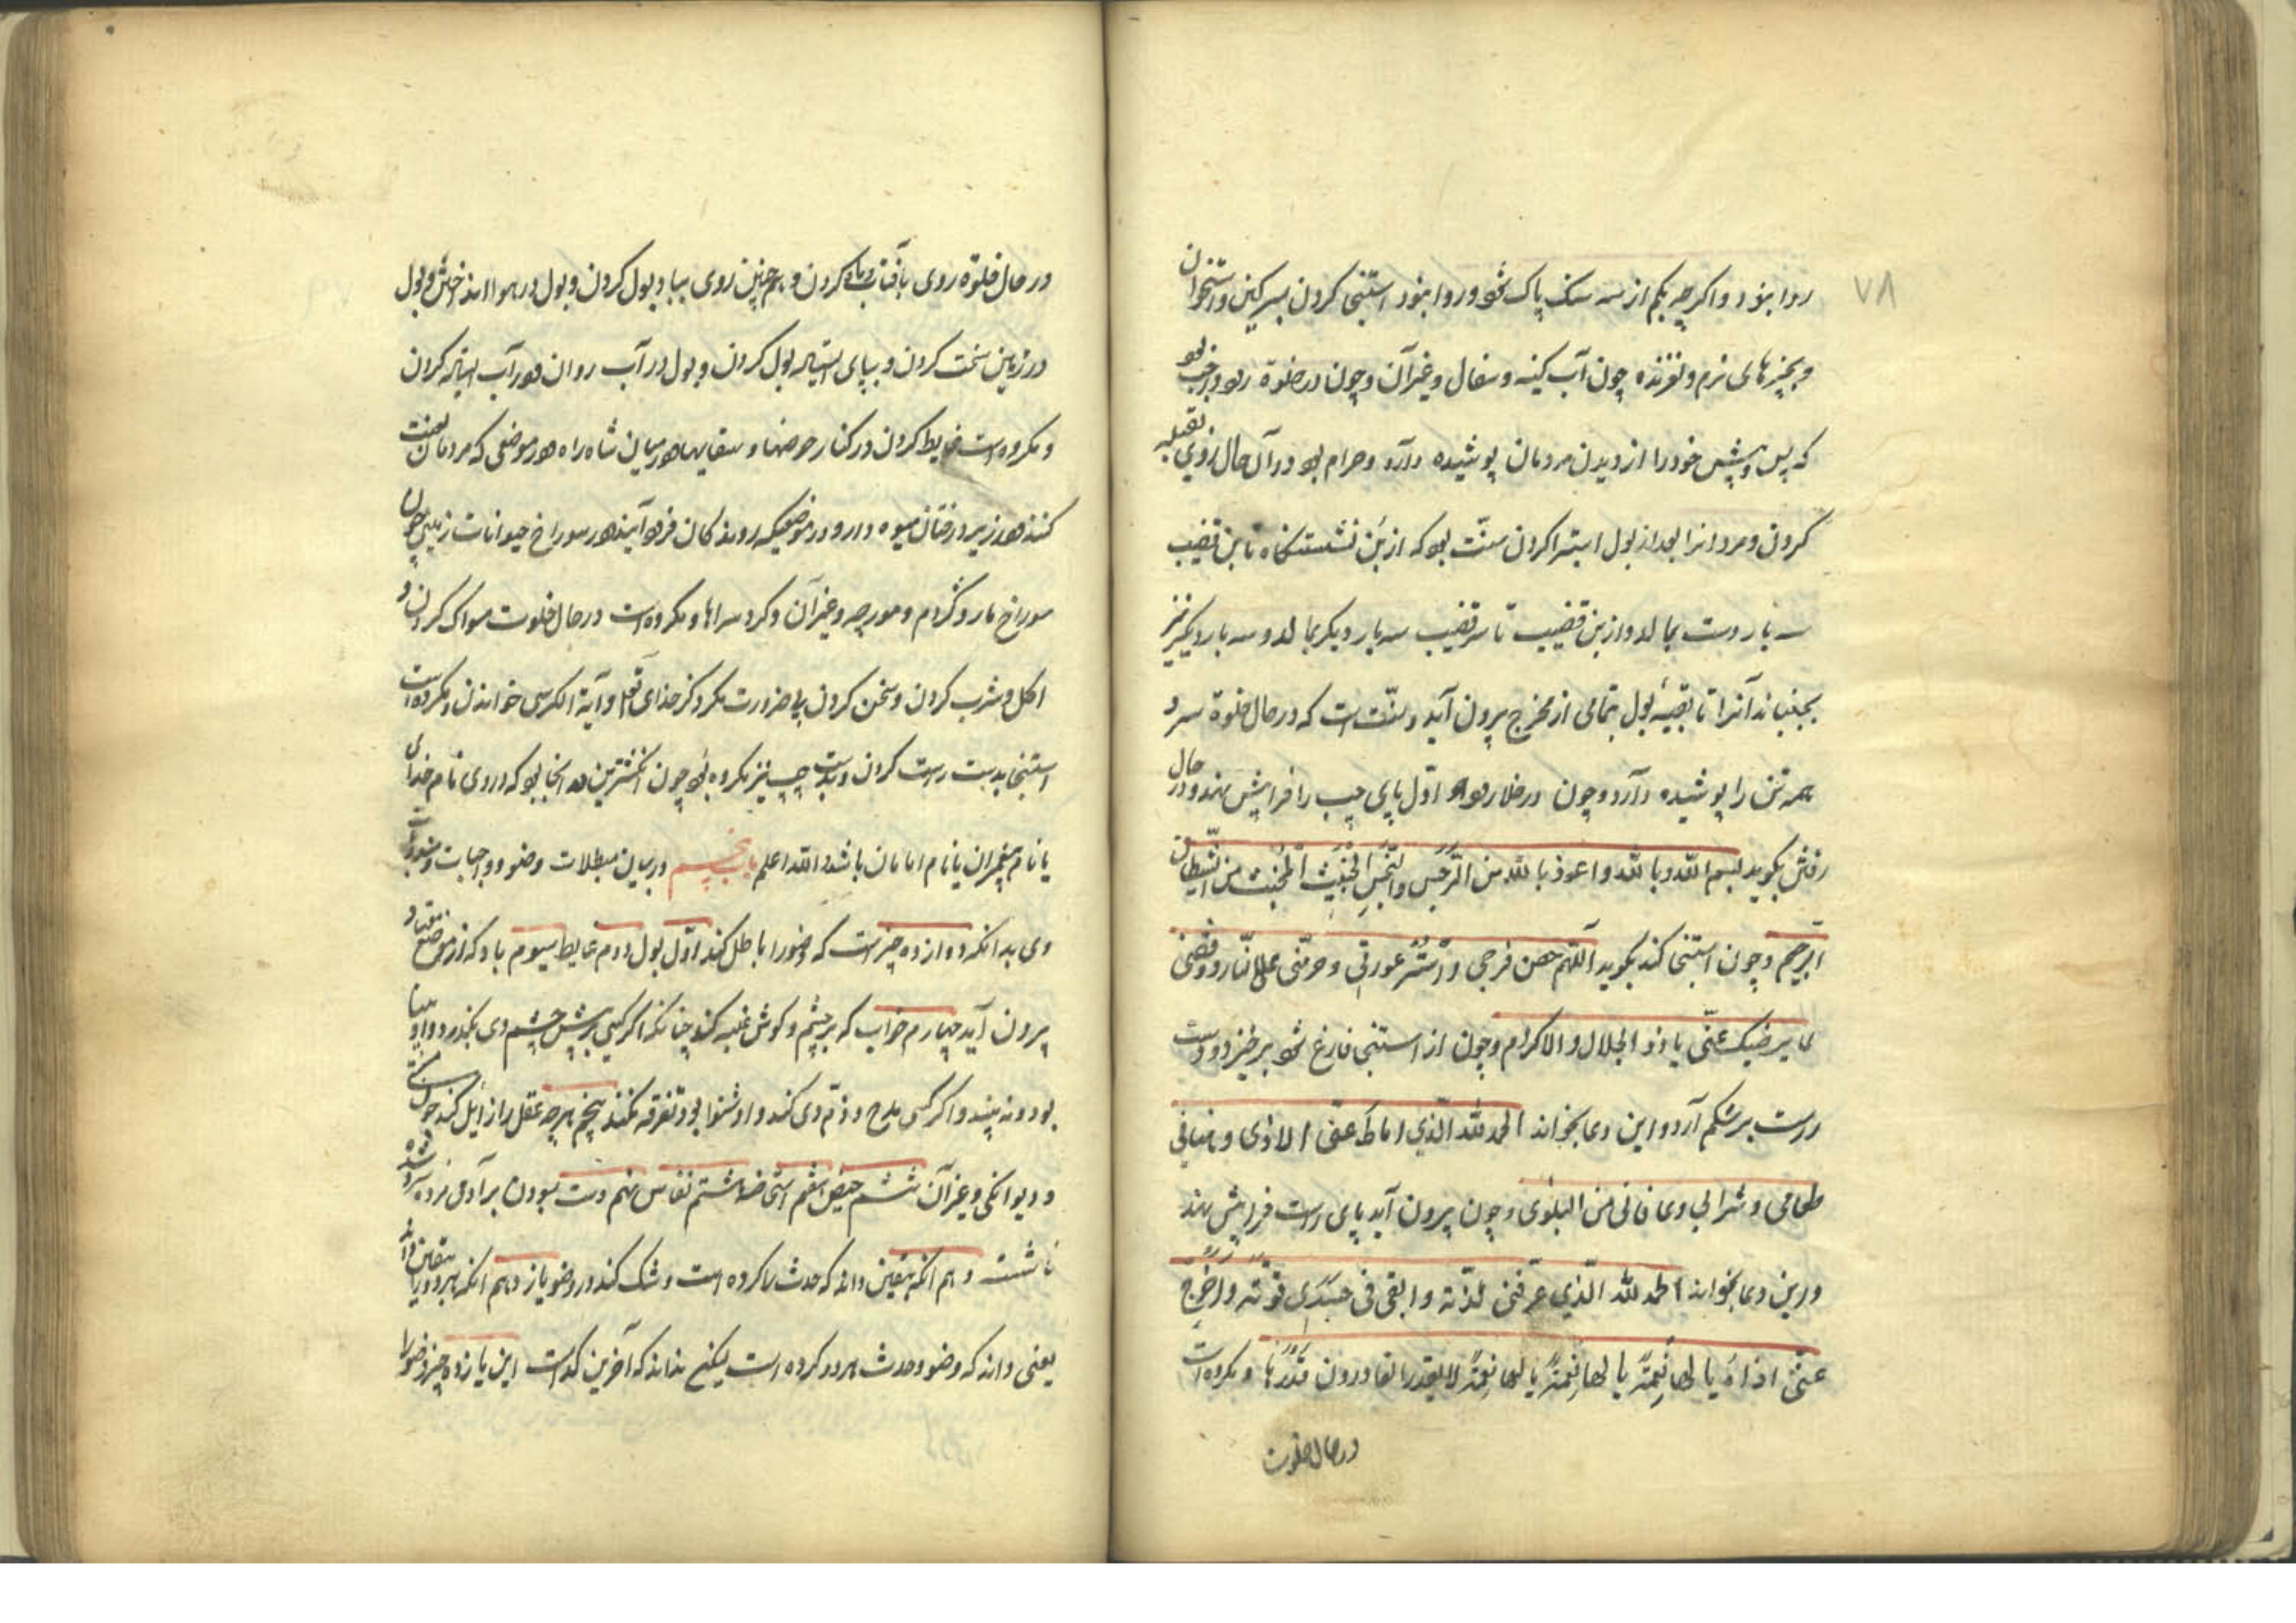 ۷۸
روا نبود و اگرچه بکم از سه سنک پاک شود و روا نبود استنجی کردن بسرکین و استخوان
و بچیزهای نرم و لغزنده چون آب کینه و سفال و غیر آن و چون در خلوة رود واجب بود
که پس و پیش خود را از دیدن مردمان پوشیده دارد و حرام بود در آن حال روی بقبله
کردن و مردانرا بعد از بول استبرا کردن سنّت بود که از بُن نشستنکاه تا بن قضیب
سه بار دست بمالد و از بن قضیب تا سر قضیب سه بار دیکر بمالد و سه بار دیکر نیز
بجنباند آنرا تا بقیّه بول بتمامی از مخرج بیرون آید و سنّت است که در حال خلوة سر و
همه تن را پوشیده دارد و چون در خلا رود اوّل پای چپ را فرا پیش نهد و در حال
رفتن بکوید بسم الله و بالله و اعوذ بالله من الرّجس النّجس الخبیث المخبث من الشّیطان
الرّجیم و چون استنجی کند بکوید اللّهم حصن فرجی و استُر عورتی و حرّمنی علی النّار و وفّقنی
لما یرضیک عنّی یا ذو الجلال و الاکرام و چون از استنجی فارغ شود برخیزد و دست
راست بر شکم آرد و این دعا بخواند الحمد لله الّذی اماط عنّی الاذی و هنّانی
طعامی و شرابی و عافانی من البلوی و چون بیرون آید پای راست فرا پیش نهد
و این دعا بخواند الحمد لله الّذی عرّفنی لذّته و ابقی فی جسدی قوّته و اخرج
عنّی اذاهُ یا لها نعمة یا لها نعمةً یا لها نعمةً لا یقدر القادرون قدرها و مکروه است
در حال خلوت
در حال خلوة روی بآفتاب و ماه کردن و همچنین روی بباد بول کردن و بول در هوا انداختن و بول
در زمین سخت کردن و بپای ایستاده بول کردن و بول در آب روان و در آب ایستاده کردن
و مکروه است غایط کردن در کنار حوضها و سقایها و در میان شاه راه و در موضعی که مردمان لعنت
کنند و در زیر درختان میوه دار و در موضعیکه روندکان فرود آیند و در سوراخ حیوانات زمین چون
سوراخ مار و کژدم و مورچه و غیر آن و کرد سراها و مکروه است در حال خلوت مسواک کردن و
اکل و شرب کردن و سخن کردن بی ضرورت مکر ذکر خدای تعالی و آیة الکرسی خواندن و مکروه است
استنجا بدست راست کردن و بدست چپ نیز مکروه بود چون انکشترین در انجا بود که در وی نام خدای
یا نام پیغمبران یا نام امامان باشد و الله اعلم باب پنجم در بیان مبطلات وضو و واجبات و مندوبات
وی بدانکه دوازده چیز است که وضو را باطل کند اوّل بول دوم غایط سیوم باد که از موضع معتاد
بیرون آید چهارم خواب که بر چشم و کوش غلبه کند چنانکه اکر کسی پیش چشم وی بکذرد و او بینا
بود و نه بیند و اکر کسی مدح و ذمّ وی کند و او شنوا بود تفرقه نکند پنجم هرچه عقل را زایل کند چون مستی
و دیوانکی و غیر آن ششم حیض هفتم استحاضه هشتم نفاس نهم دست بسودن بر آدمی مرده سرد شده
ناشسته دهم انکه بیقین داند که حدث را کرده است و شک کند در وضو یازدهم انکه هر دو را بیقین داند
یعنی داند که وضو و حدث هر دو کرده است لیکن نداند که آخرین کدامست این یازده چیز وضو را